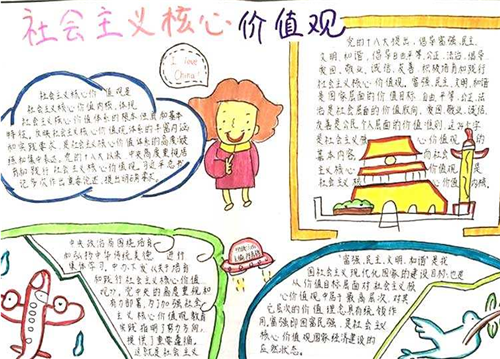 社会主义核心价值观
I love China!
社会主义核心价值观是
社会主义核心价值内核,体现
社会主义核心价值体系的根本性质和基本
特征,反映社会主义核心价值观体系的丰富内涵
和实践要求,是社会主义核心价值体系的高度凝
练和集中表达。党的十八大以来,中央高度重视培
育和践行社会主义核心价值观。习近平总书
记多次作出重要论述、提出明确要求。
党的十八大提出,倡导富强、民主、
文明、和谐,倡导自由、平等、公正、法治,倡导
爱国、敬业、诚信、友善,积极培育和践行
社会主义核心价值观。富强、民主、文明、和谐
是国家层面的价值目标,自由、平等、公正、法
治是社会层面的价值取向,爱国、敬业、诚信、
友善是公民个人层面的价值准则,这24个字
是社会主义核
的基本内容,
中央政治局围绕培育
和弘扬中华传统美德 进行
集体学习,中办下发《关于培育
和践行社会主义核心价值
观》,党中央的高度重视和
有力部署,为加强社会主
义核心价值观教育
实践指明了努力方向,
提供了重要遵循。
这就是社会主义
“富强、民主、文明、和谐”是我
国社会主义现代化国家的建设目标,也是
从价值目标层面对社会主义核
心价值观中居于最高层次,对其
它层次的价值理念具有统领作
用。富强即国富民强,是社会主义
核心价值观国家经济建设的
应然状态。